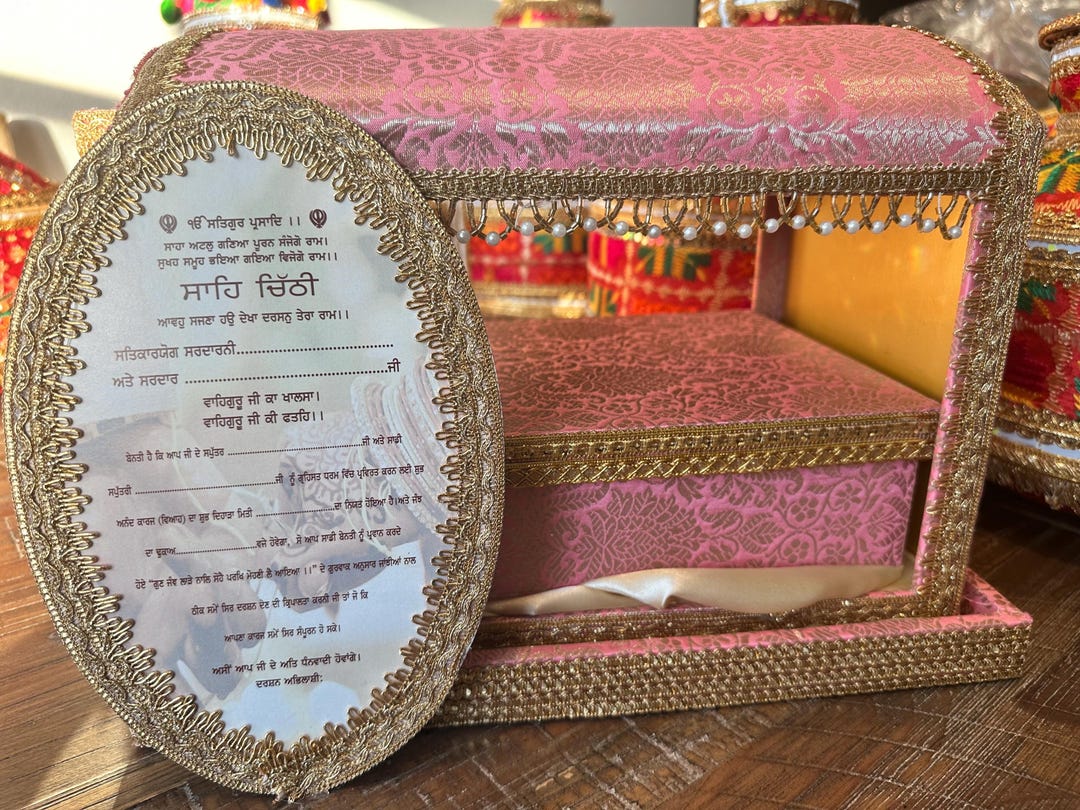 ੴ ਸਤਿਗੁਰ ਪ੍ਰਸਾਦਿ ।।
ਸਾਹਾ ਅਟਲੁ ਗਣਿਆ ਪੂਰਨ ਸੰਜੋਗੋ ਰਾਮ।
ਸੁਖਹ ਸਮੂਹ ਭਇਆ ਗਇਆ ਵਿਜੋਗੋ ਰਾਮ।।
ਸਾਹਿ ਚਿੱਠੀ
ਆਵਹੁ ਸਜਣਾ ਹਉ ਦੇਖਾ ਦਰਸਨੁ ਤੇਰਾ ਰਾਮ।।
ਸਤਿਕਾਰਯੋਗ ਸਰਦਾਰਨੀ........................................
ਅਤੇ ਸਰਦਾਰ ..................................................ਜੀ
ਵਾਹਿਗੁਰੂ ਜੀ ਕਾ ਖਾਲਸਾ।
ਵਾਹਿਗੁਰੂ ਜੀ ਕੀ ਫਤਹਿ।।
ਬੇਨਤੀ ਹੈ ਕਿ ਆਪ ਜੀ ਦੇ ਸਪੁੱਤਰ ........................................ਜੀ ਅਤੇ ਸਾਡੀ
ਸਪੁੱਤਰੀ ........................................ਜੀ ਨੂੰ ਗ੍ਰਹਿਸਤ ਧਰਮ ਵਿੱਚ ਪ੍ਰਵਿਰਤ ਕਰਨ ਲਈ ਸ਼ੁਭ
ਅਨੰਦ ਕਾਰਜ (ਵਿਆਹ) ਦਾ ਸ਼ੁਭ ਦਿਹਾੜਾ ਮਿਤੀ ........................ਦਾ ਨਿਯਤ ਹੋਇਆ ਹੈ।ਅਤੇ ਜੰਝ
ਦਾ ਢੁਕਾਅ........................ਵਜੇ ਹੋਵੇਗਾ, ਸੋ ਆਪ ਸਾਡੀ ਬੇਨਤੀ ਨੂੰ ਪ੍ਰਵਾਨ ਕਰਦੇ
ਹੋਏ "ਗੁਣ ਜੰਞ ਲਾੜੇ ਨਾਲਿ ਸੋਹੈ ਪਰਖਿ ਮੋਹਣੀ ਲੈ ਆਇਆ ।।" ਦੇ ਗੁਰਵਾਕ ਅਨੁਸਾਰ ਜਾਂਞੀਆਂ ਨਾਲ
ਠੀਕ ਸਮੇਂ ਸਿਰ ਦਰਸ਼ਨ ਦੇਣ ਦੀ ਕ੍ਰਿਪਾਲਤਾ ਕਰਨੀ ਜੀ ਤਾਂ ਜੋ ਕਿ
ਆਪਣਾ ਕਾਰਜ ਸਮੇਂ ਸਿਰ ਸੰਪੂਰਨ ਹੋ ਸਕੇ।
ਅਸੀਂ ਆਪ ਜੀ ਦੇ ਅਤਿ ਧੰਨਵਾਦੀ ਹੋਵਾਂਗੇ।
ਦਰਸ਼ਨ ਅਭਿਲਾਸ਼ੀ: